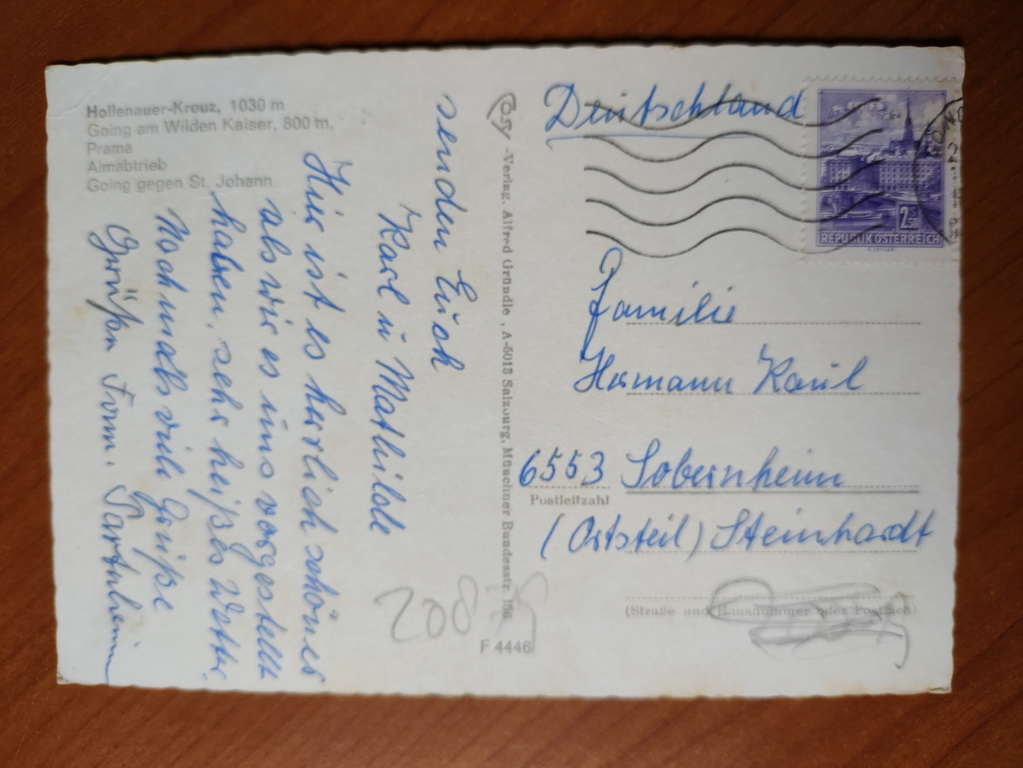 Hollenauer-Kreuz, 1030 m
Going am Wilden Kaiser, 800 m,
Prama
Almabtrieb
Going gegen St. Johann
senden Euch
Karl u Mathilde
Hier ist es herrlich schöner
als wir es uns vorgestellt
haben, sehr heißes Wetter.
Nochmals viele Grüße
Grüßen Fam. Partenheim
-Verlag, Alfred Gründle, A-5013 Salzburg, Münchner Bundesstr.
F 4446
208
Deutschland
2.50
REPUBLIK ÖSTERREICH
Familie
Hermann Karil
6553 Sobernheim
Postleitzahl
(Ortsteil) Steinhardt
(Straße und Hausnummer oder Postfach)